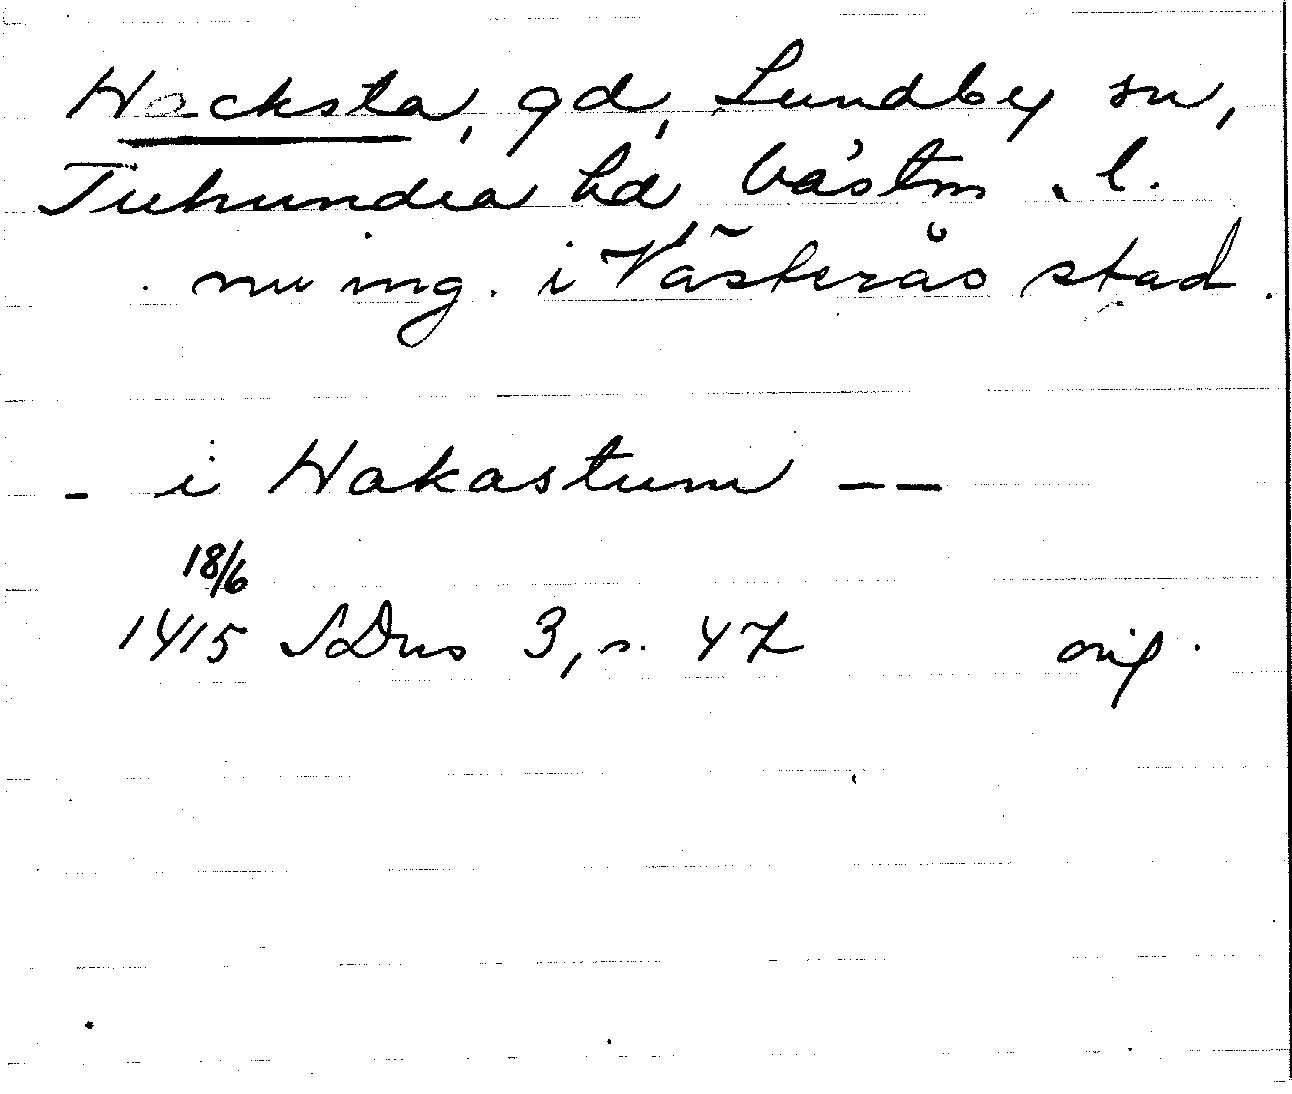 Hacksta, gd, Lundby sn,
Tuhundra hd Västm. l.
nu ing. i Västerås stad.
- i Hakastum --
18/6
1415 SDns 3, s. 47 orig.